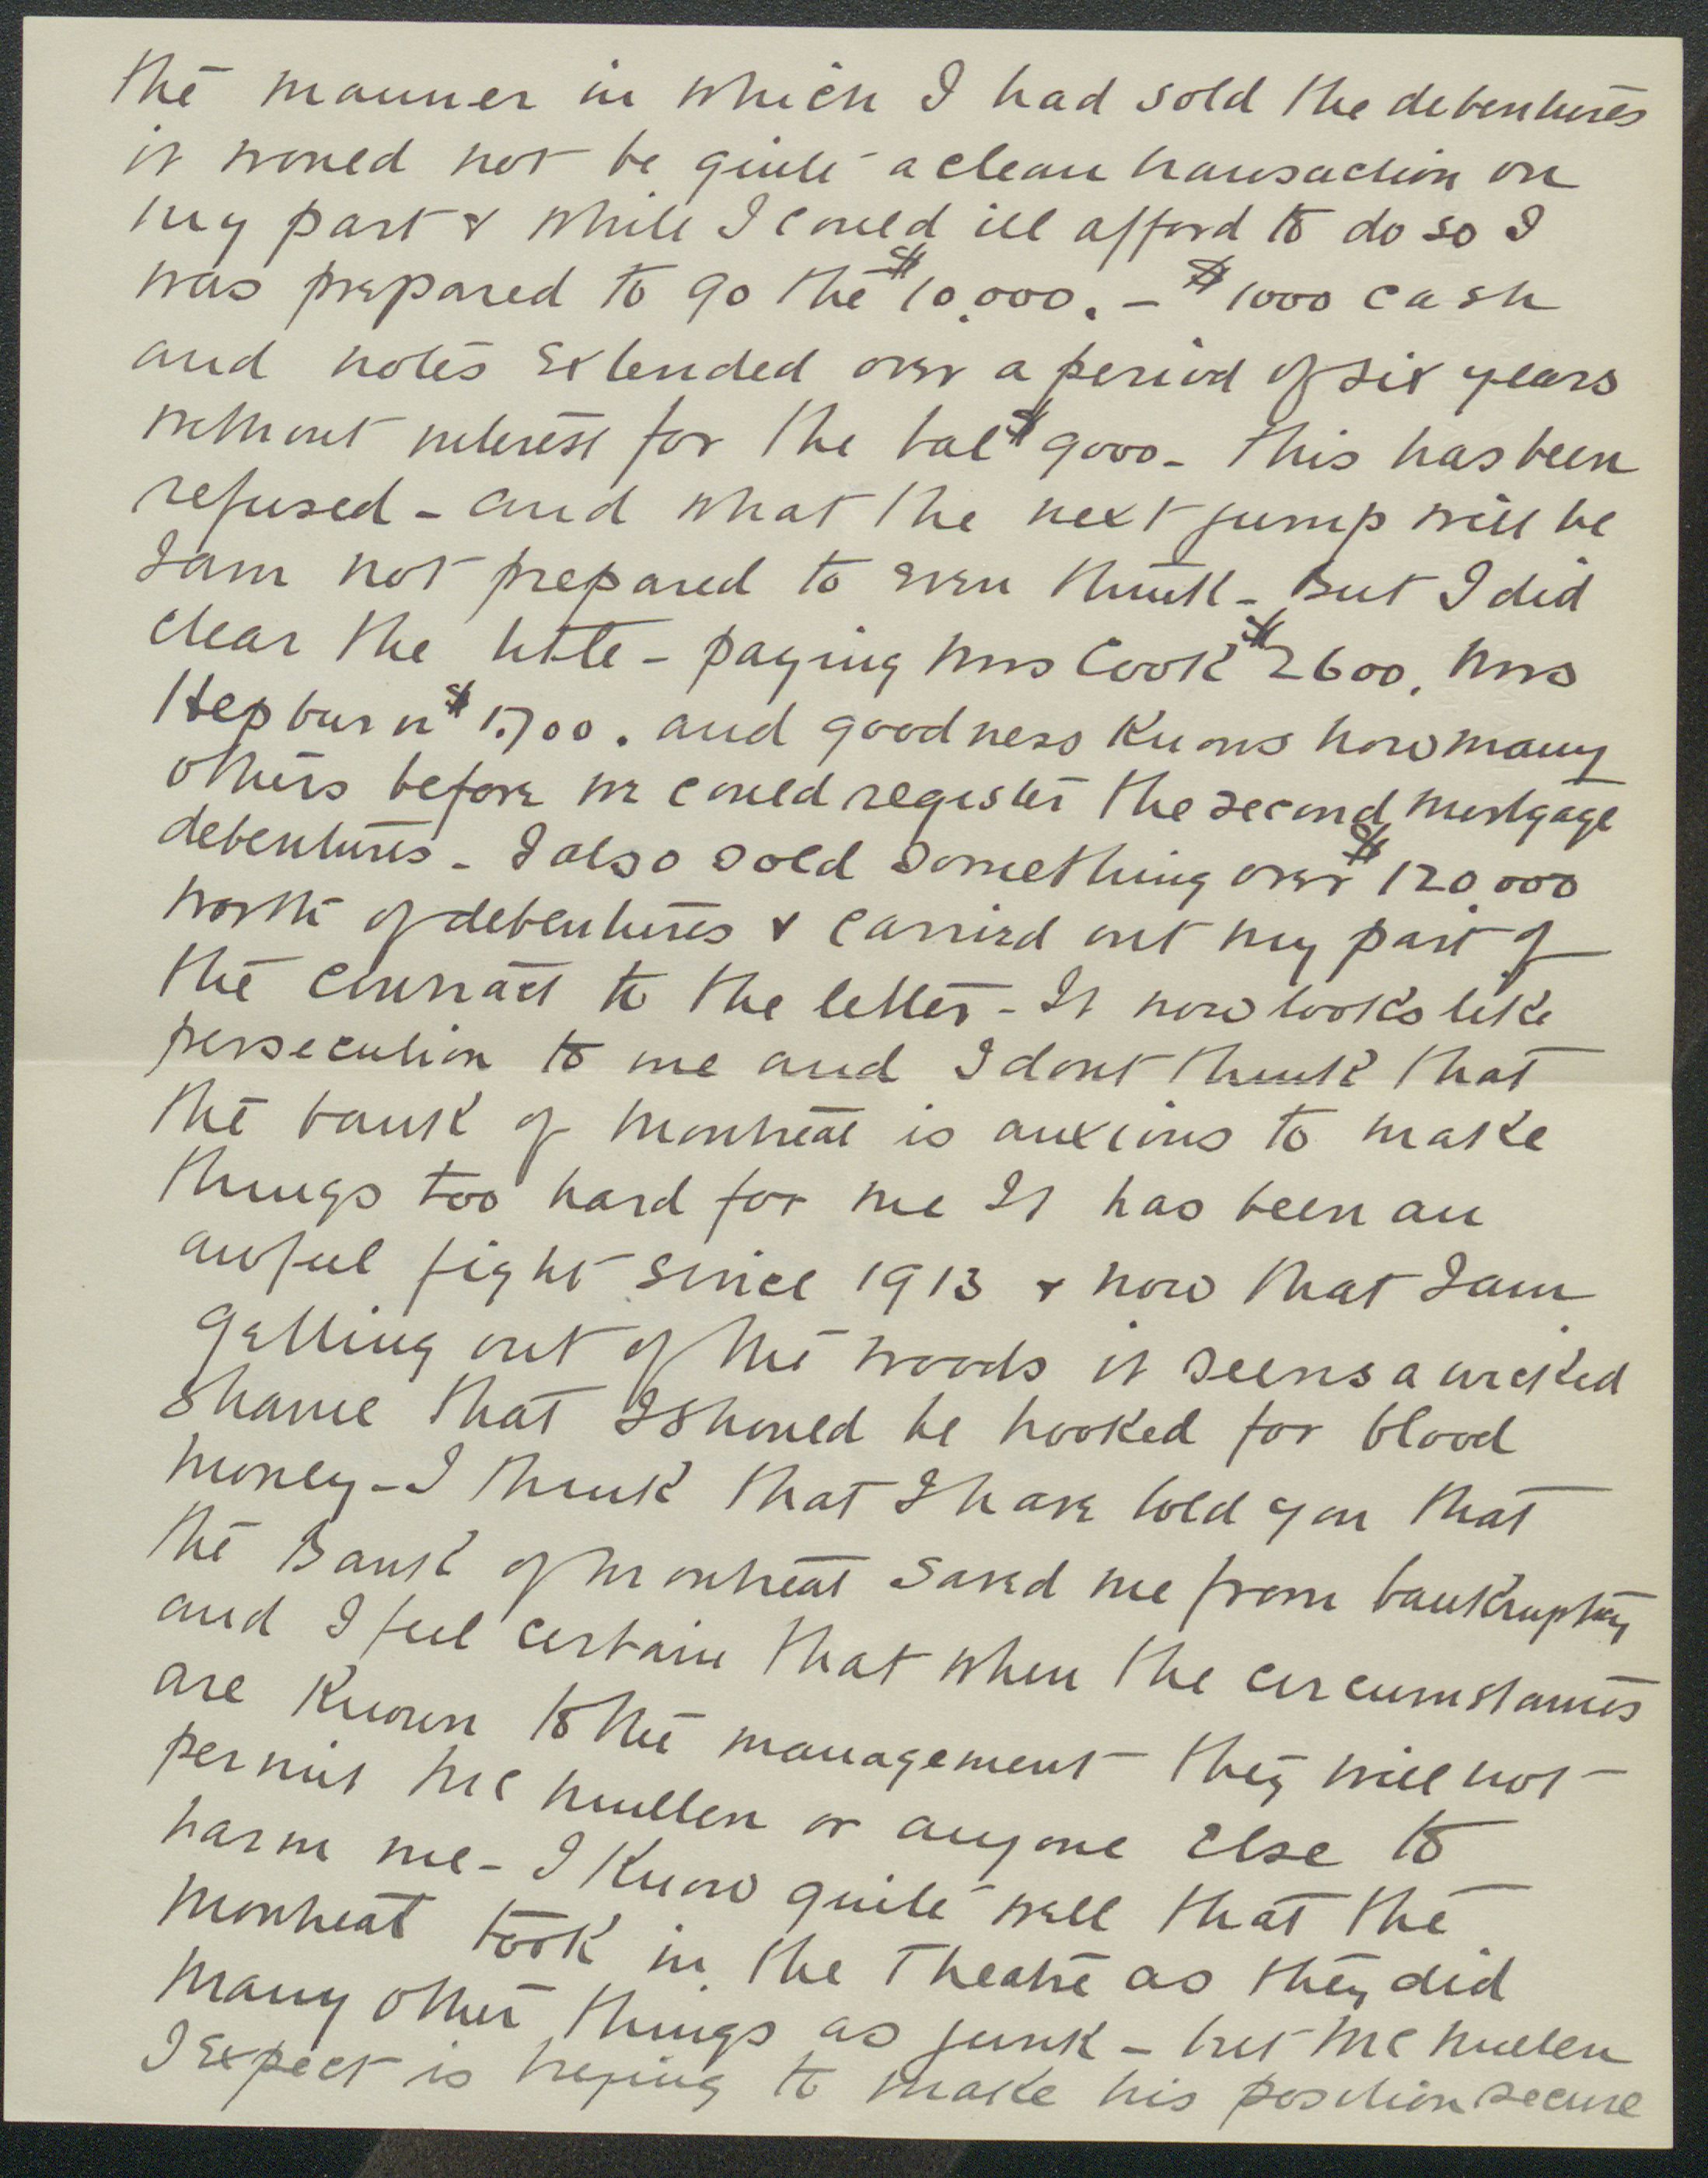 the manner in which I had sold the debentures
it would not be quite a clean transaction on
my part & while I could ill afford to do so I
was prepared to go the $10.000. - $1000 cash
and notes extended over a period of six years
without interest for the bal $9000 - this has been
refused - and what the next jump will be
I am not prepared to even think - But I did
clear the title - paying Mrs Cook $2600. Mrs
Hepburn $1.700. and goodness knows how many
others before we could register the second mortgage
debentures - I also sold something over $120.000
worth of debentures & carried out my part of
the contract to the letter - It now looks like
persecution to me and I dont think that
the bank of Montreal is anxious to make
things too hard for me It has been an
awful fight since 1913 & now that I am
getting out of the woods it seems a wicked
shame that I should be hooked for blood
money - I think that I have told you that
the Bank of Montreal saved me from bankruptcy
and I feel certain that when the circumstances
are known to the management they will not
permit McMullen or anyone else to
harm me - I know quite well that the
Montreal took in the Theatre as they did
many other things as junk - but McMullen
I expect is trying to make his position secure